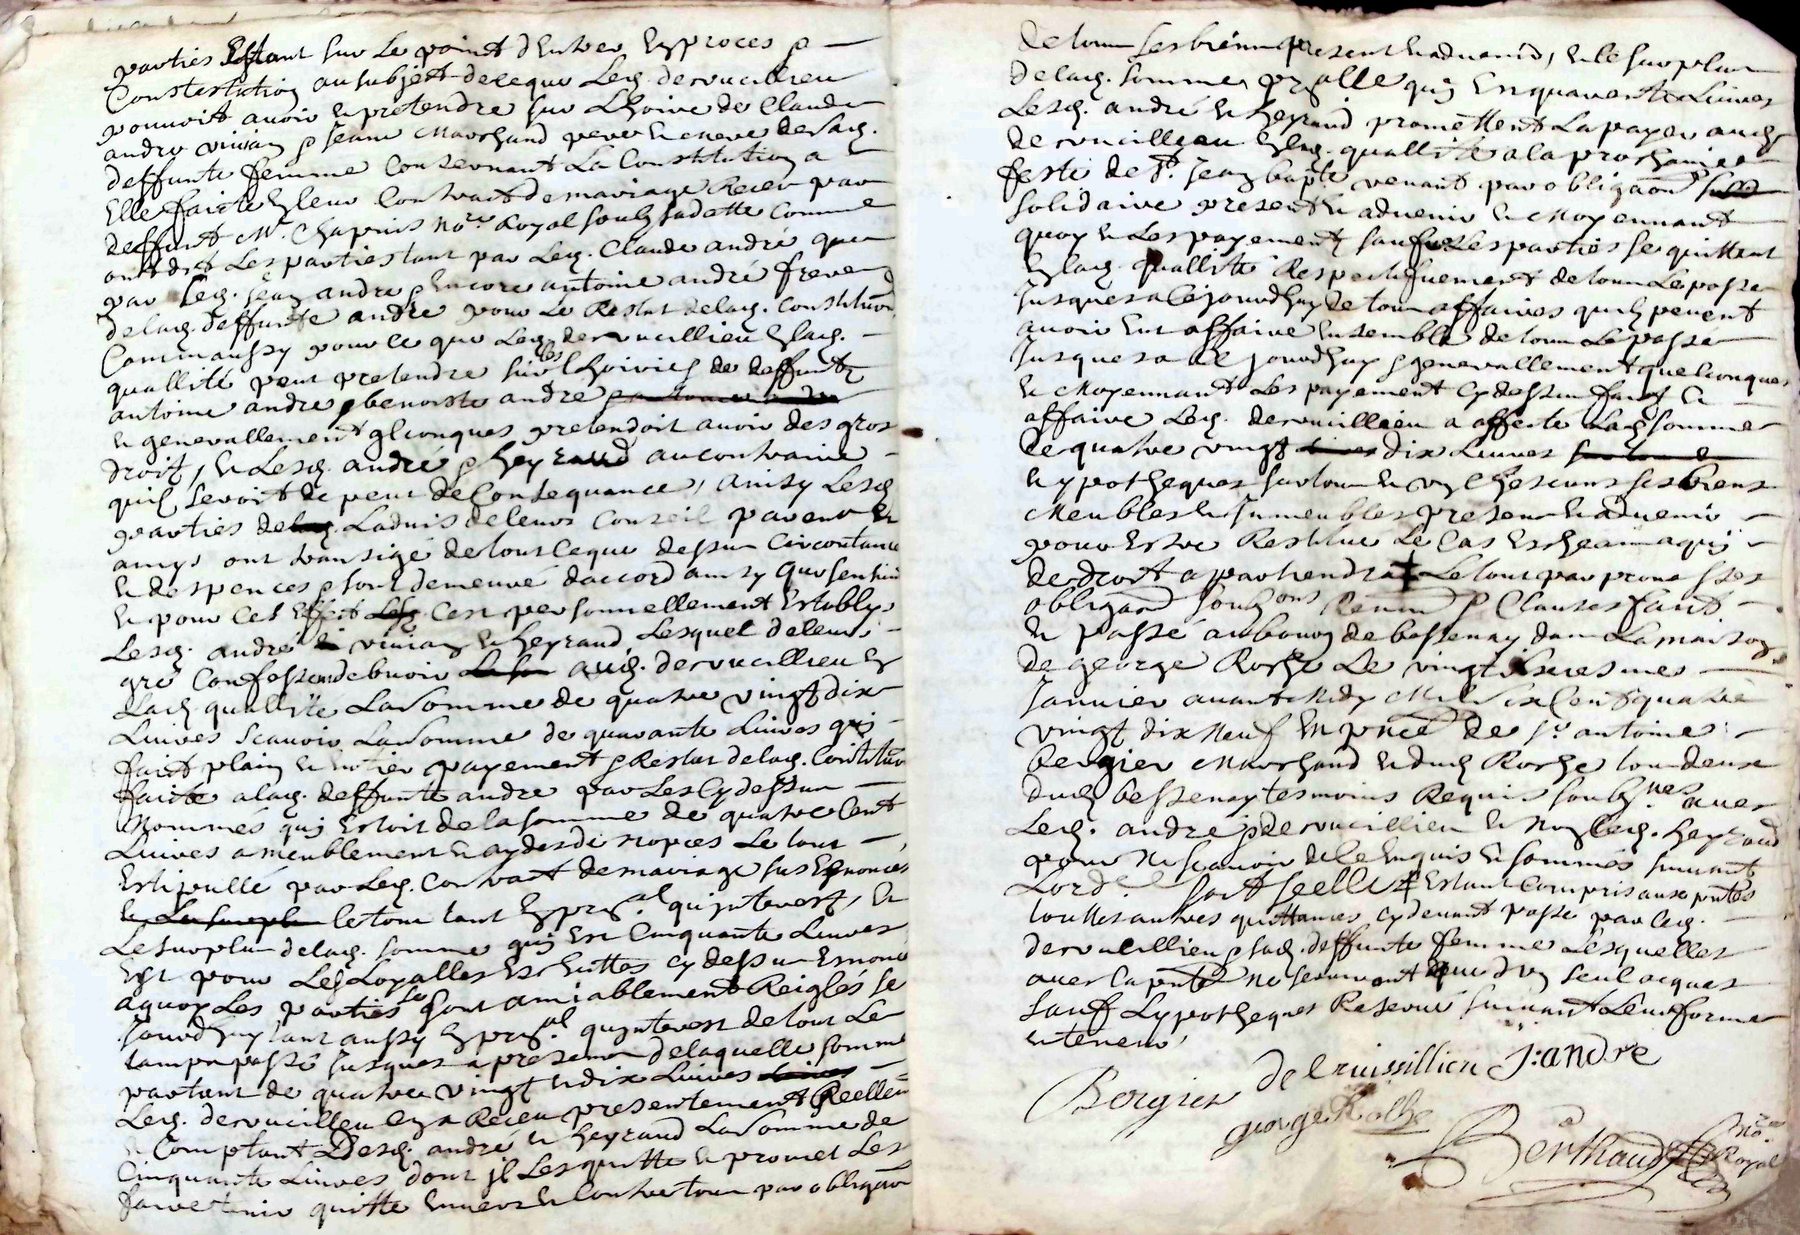 parties Estant sur Le point d'Entrer En proces &
Constestation au subject de ce que Led. decrucillieu
pouvoit avoir et pretendre sur L'hoirie de Claude
andre vivian & Jeane Marchand pere et mere de lad.
deffunte femme Consernant La Constitution a
Elle faicte En leur Contract de mariage Receu par
deffunt Mr. Chapuis nore. Royal soubz sa datte Comme
ont dit Les parties tant par Led. Claude andré que
par Led. Jean andre & Encore antoine andré frere
de lad. deffunte andre pour Le Restat de lad. Constituon
Comm aussy pour ce que Led. decrucillieu En lad.
quallité peut pretendre sur les hoiries de deffuntz
antoine andre & benoiste andre
et generallement qlconques pretendoit avoir des gros
droitz, et Lesd. andré & heyraud au contraire
quil seroit de peut de Consequance, ainsy Lesd.
parties de Ladvis de leurs Conseil parens et
amys ont transigé de tout Ceque dessus Circonstance
et despences & sont demeuré d'accord ainsy que sensuit
et pour Cet Effect Cest personnellement Establys
Lesd. andré vivian et heyraud, Lesquel de leur
gré Confessent debvoir aud. decrucillieu En
lad. quallité La somme de quatre vingt dix
Livres scavoir La somme de quarante Livres qui
faict plain et entier payement & Restat de lad. Constituon
faicte a lad. deffunte andre par Les Cy dessus
Nommés qui Estoit de la somme de quatre Cent
Livres ameublement et aydes de nopces Le tout
Estipullé par Led. Contract de mariage sus Enoncés
et Le surplus le tout tant En pripal quinterest, et
Le surplus de lad. somme qui Est Cinquante Livres
Est pour Les Loyalles Escheuttes cy dessus Enoncé
a quoy Les parties se sont amiablement Reiglés se
jourdhuy tant aussy En pripal quinterest de tout Le
tamps passé jusques a present de laquelle somme
partant de quatre vingt et dix Livres Livres
Led. decrucillieu En a Receu presentement Reellemt
et Comptant Desd. andre et heyraud La somme de
Cinquante Livres dont il Les quitte et promet Les
faire tenir quitte Envers et Contre tous par obligaon
de tous ses biens present et advenir, et le surplus
de lad. somme pnpalle qui Est quarante Livres
Lesd. andré et heyraud promettent La payer aud.
decrucillieu En lad. quallité a la prochaine
feste de St. Jean bapte venant par obligaon
solidaire present et advenir et Moyennant
quoy et Les payement sauf Les parties se quittent
En lad. quallité Respectifvement de tous Le passe
Jusques a Cejourdhuy de tous affaires quilz peuvent
avoir Eut affaire Ensemble de tous Le passe
Jusques a ce jourdhuy & generallement quelconques
et Moyennant Les payement cy dessus faict et
affaire Led. decrucillieu a affecté Lad. somme
de quatre vingt dix Livres
et ypotheques sur tous et un chescuns ses biens
Meubles et Jmeubles present et advenir
pour Estre Restitué Le Cas Escheant a qui
de droit apartiendra + Le tout par promesses
obligaon soubzons Renon & Clauses faict
et passé au bourg de bessenay dans La maison
de george Roche Le vingt
Janvier avant Midy Mil six Cent quatre
vingt dix Neuf En pnce de sr. antoine
bergier Marchand et dud. Roche tous deux
dud. bessenay tesmoins Requis soubznes avec
Led. andré & decrucillieu et Non Led. heyraud
pour Ne scavoir de ce Enquis et sommés suivant
Lord. soit scellé # Estant Compris aux pntes
touttes autres quittances cy devant passe par Led.
decrucillieu & sad. deffunte femme Lesquelles
avec La pnte ne serviront que d'un seul acquit
sauf Lypotheque Reservé suivant Leur forme
et teneur
Bergier decruissillieu J: andre
george Rolhe
Berthaud Nore Royal